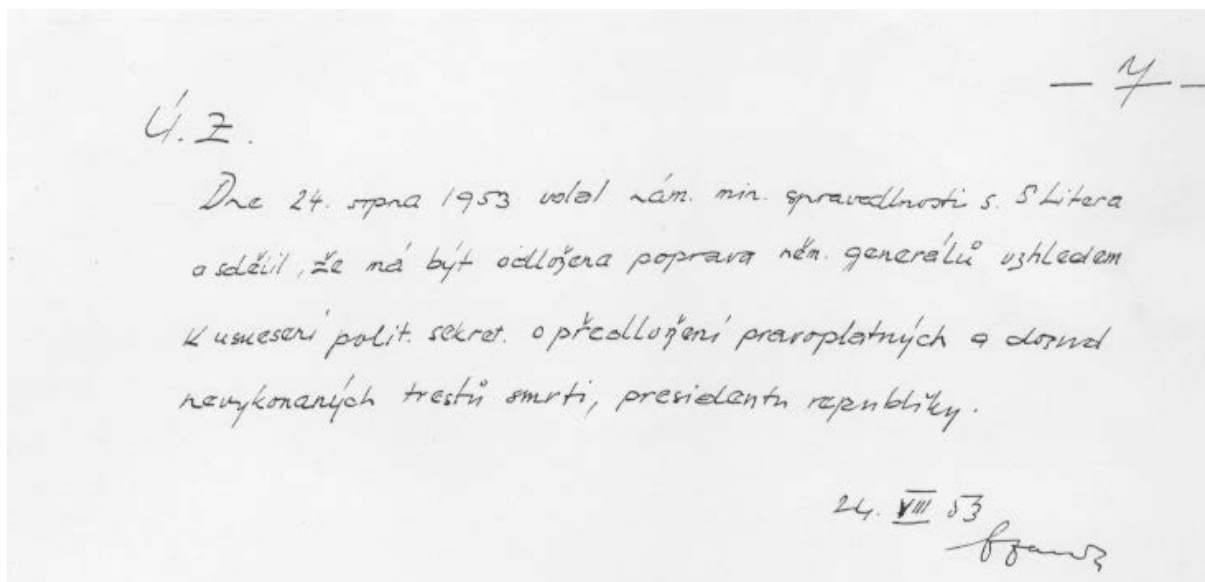 Ú. Z.
Dne 24. srpna 1953 volal nám. min. spravedlnosti s. Litera
a sdělil, že má být odložena poprava něm. generálů vzhledem
k usnesení polit. sekret. o předložení pravoplatných a dosud
nevykonaných trestů smrti, presidentu republiky.
24. VIII 53